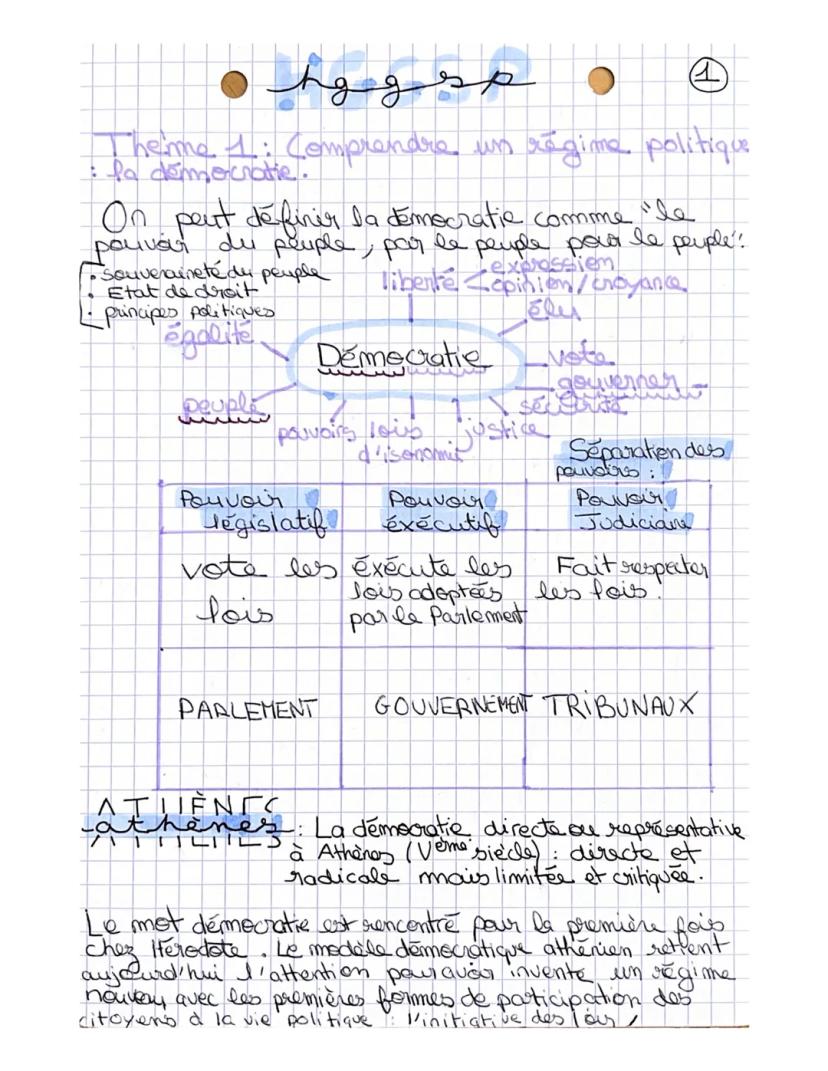 HGGSP
hggsp
1
Thème 1 : Comprendre un régime politique
: la démocratie.
On peut définir la démocratie comme "le
pouvoir du peuple, par le peuple pour le peuple".
• souveraineté du peuple
• Etat de droit
• principes politiques
liberté < expression
opinion/croyance
élu
égalité
Démocratie
vote
gouverner
peuple
sécurité
pouvoirs lois justice
d'isonomie
Séparation des
pouvoirs :
Pouvoir législatif
Pouvoir éxécutif
Pouvoir Judiciaire
vote les lois
éxécute les lois adoptées par le Parlement
Fait respecter les lois.
PARLEMENT
GOUVERNEMENT
TRIBUNAUX
athènes : La démocratie directe ou représentative
à Athènes (Vème siècle) : directe et
radicale mais limitée et critiquée.
Le mot démocratie est rencontré pour la première fois
chez Hérodote. Le modèle démocratique athénien retient
aujourd'hui l'attention pour avoir inventé un régime
nouveau avec les premières formes de participation des
citoyens à la vie politique : l'initiative des lois,